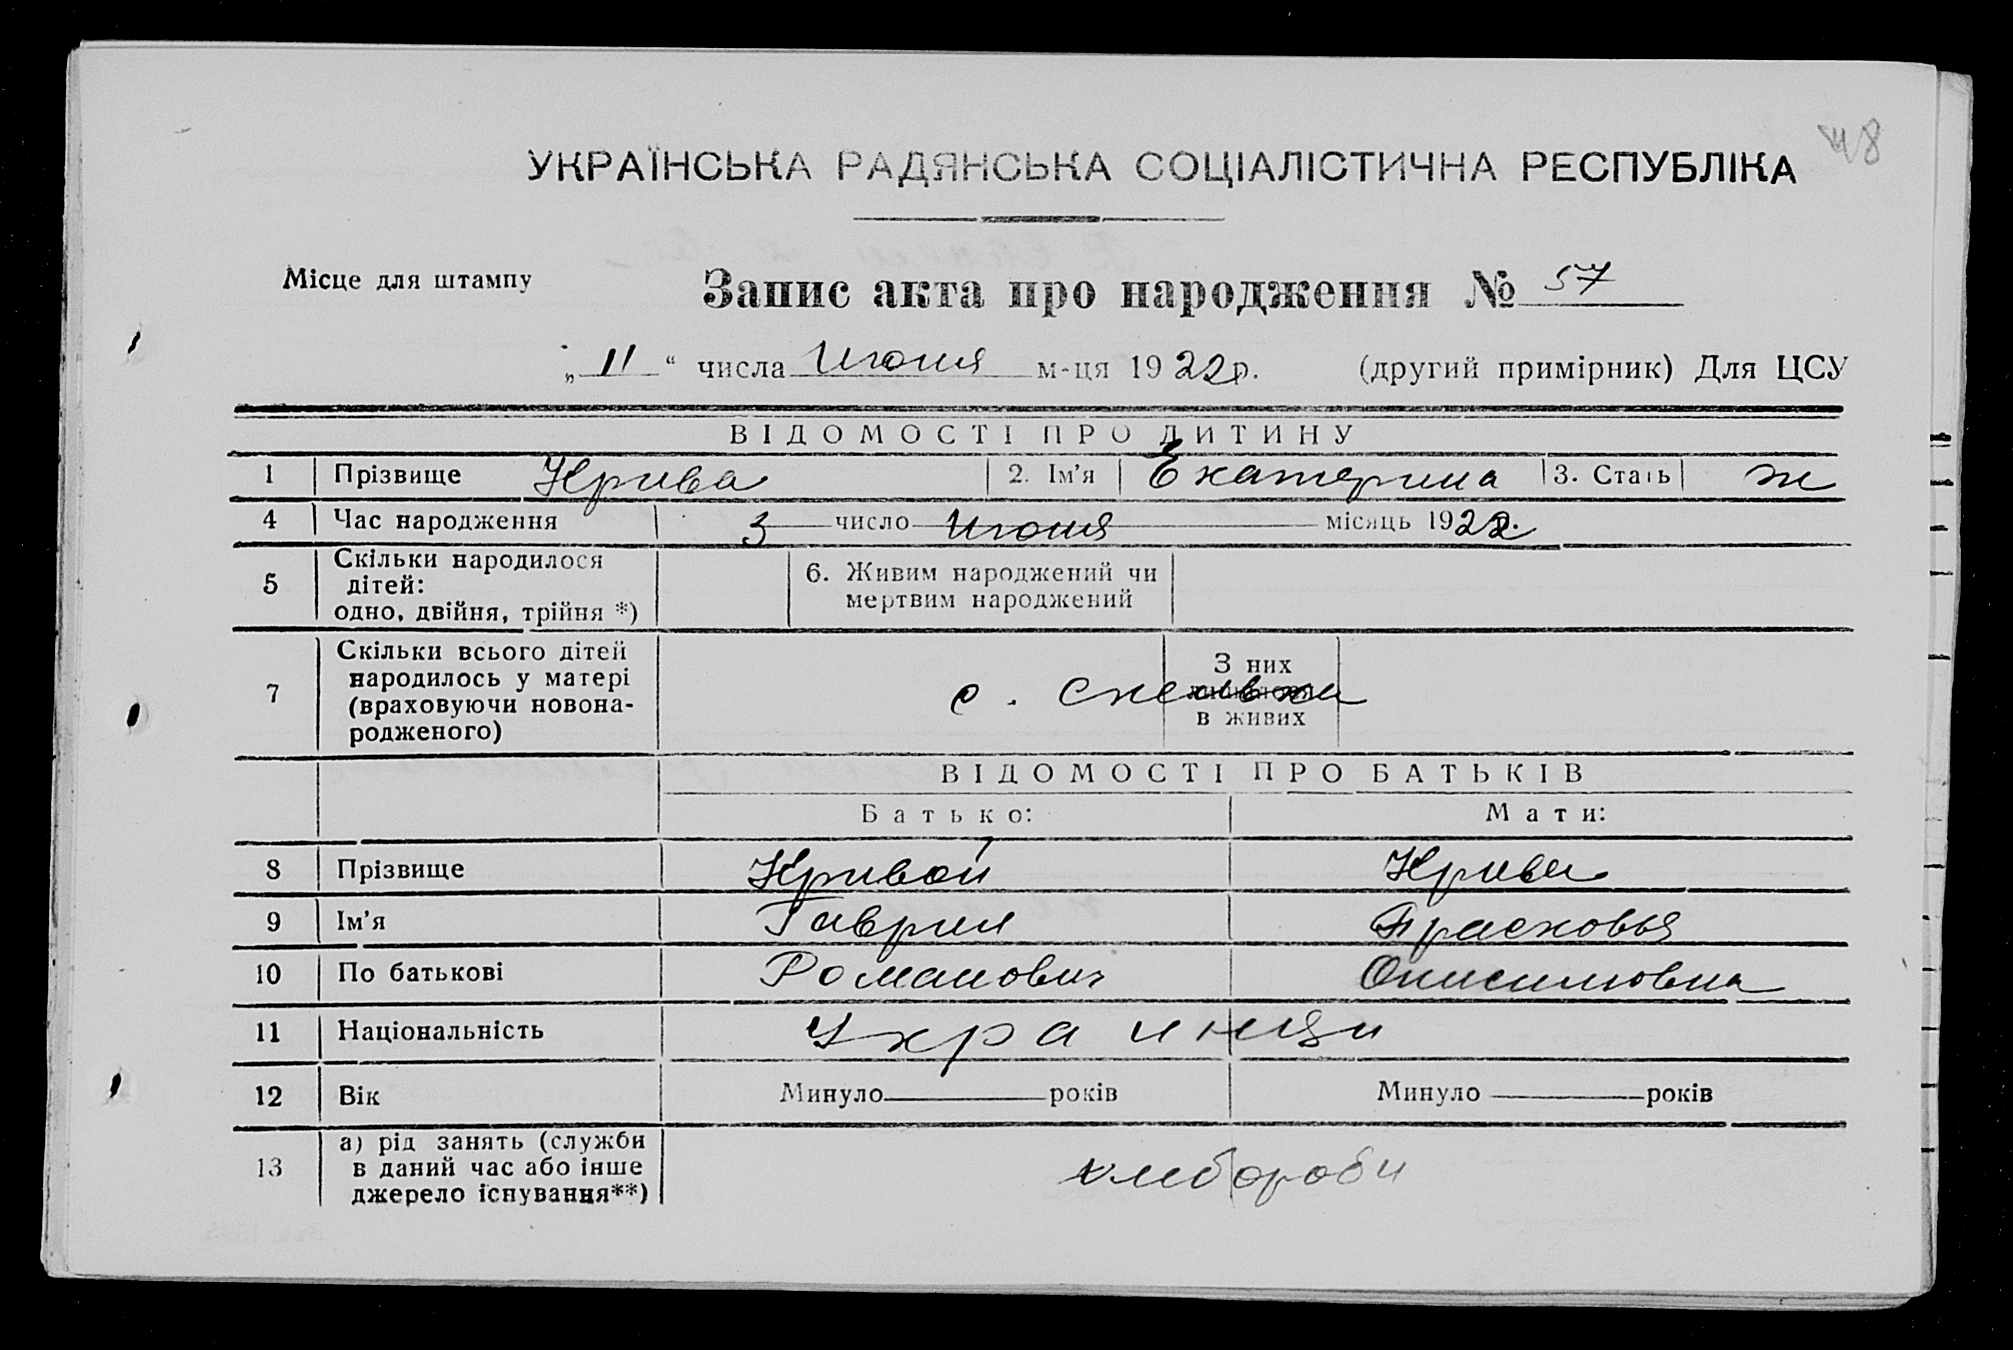 48
УКРАЇНСЬКА РАДЯНСЬКА СОЦІАЛІСТИЧНА РЕСПУБЛІКА
Місце для штампу
Запис акта про народження № 57
„ 11 “ числа Июня м-ця 1922р. (другий примірник) Для ЦСУ
ВІДОМОСТІ ПРО ДИТИНУ
1 Прізвище Крива 2. Ім'я Екатерина 3. Стать ж
4 Час народження 3 число Июня місяць 1922.
5 Скільки народилося дітей: одно, двійня, трійня *) 6. Живим народжений чи мертвим народжений
7 Скільки всього дітей народилось у матері (враховуючи новонародженого) с. З них в живих
ВІДОМОСТІ ПРО БАТЬКІВ
Батько: Мати:
8 Прізвище Кривой Крива
9 Ім'я Гаврил Прасковья
10 По батькові Романович Онисимовна
11 Національність Украинци
12 Вік Минуло років Минуло років
13 а) рід занять (служби в даний час або інше джерело існування**) хлебороби